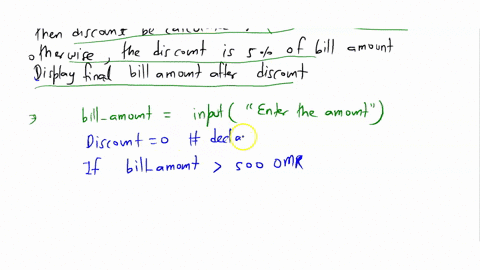 Then discount be calcul
otherwise, the discount is 5% of bill amount
Display final bill amount after discount
3 bill_amount = input( "Enter the amount")
Discount = 0 # decla
If bill_amount > 500 OMR